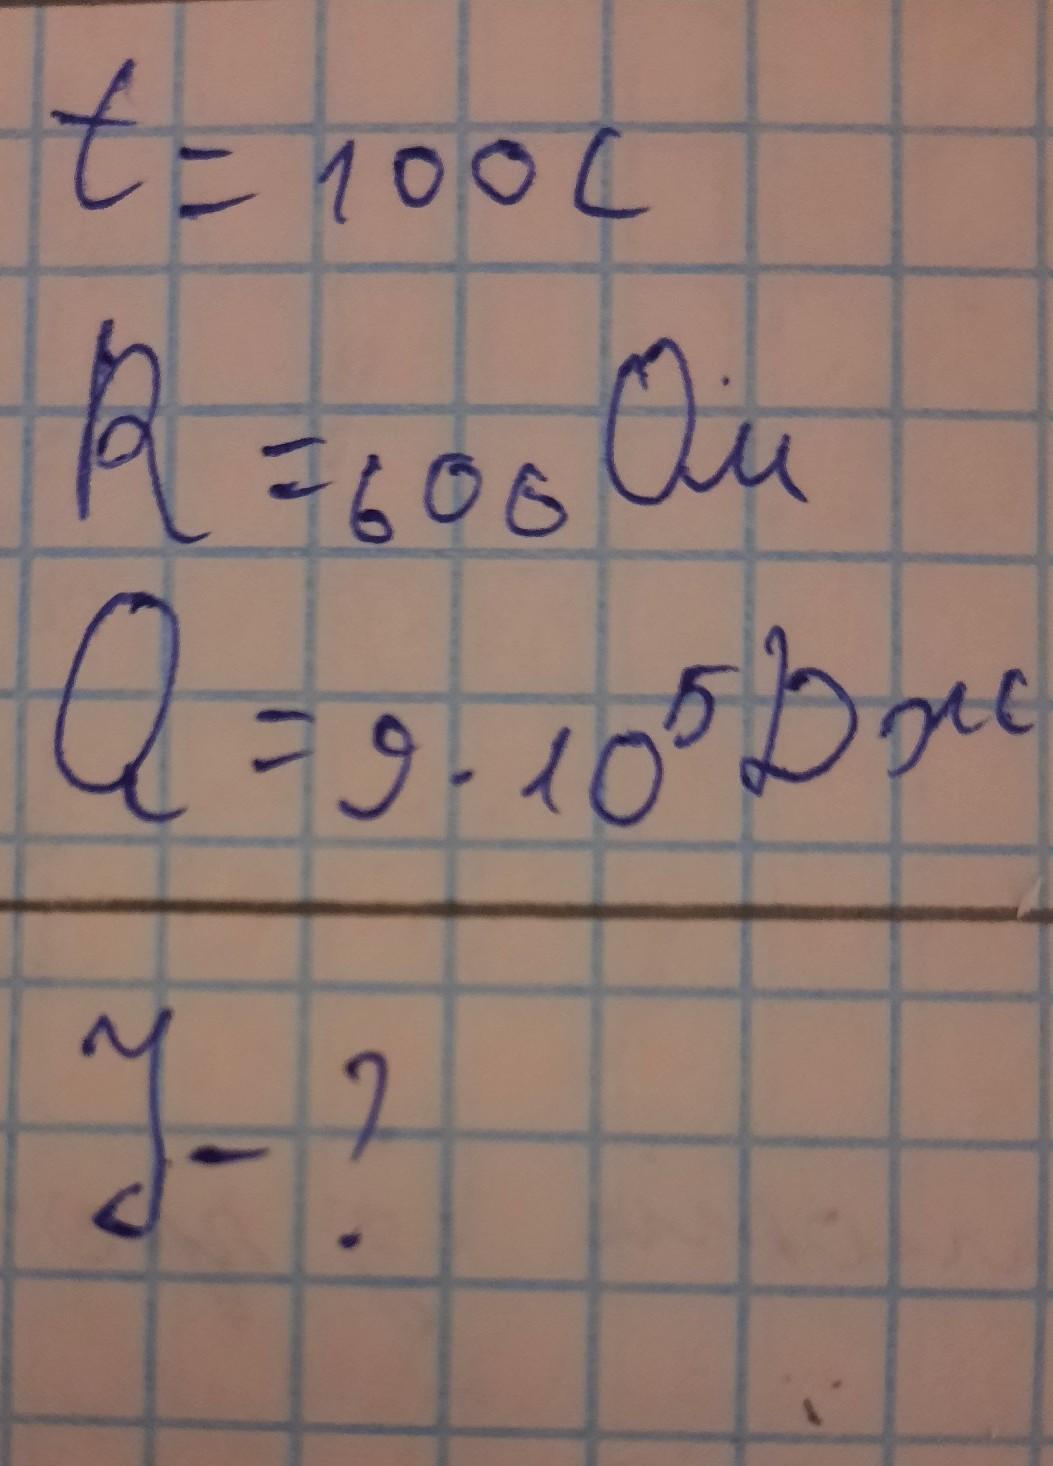 t = 100 с
R = 600 Ом
Q = 9 · 10⁵ Дж
J - ?